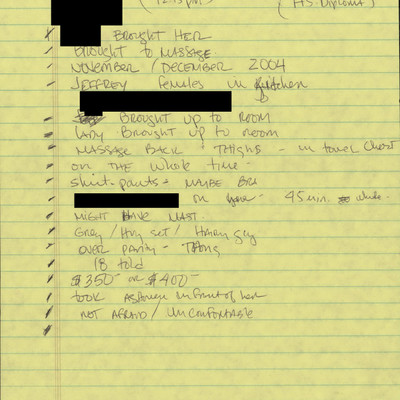 (HS-Diploma)
BROUGHT HER
BROUGHT to MASSAGE.
NOVEMBER / DECEMBER 2004
JEFFREY females in kitchen
BROUGHT up to ROOM
LADY BROUGHT up to ROOM
MASSAGE BACK - THIGHS - in towel Chest
on THE whole time -
shirt - pants - MAYBE BRA
on 45 min.
MIGHT HAVE MAST.
Grey / Hvy set / Hairy guy
OVER panty - THONG
18 told
$350- or $400-
took in front of her
NOT AFRAID / UNCOMFORTABLE